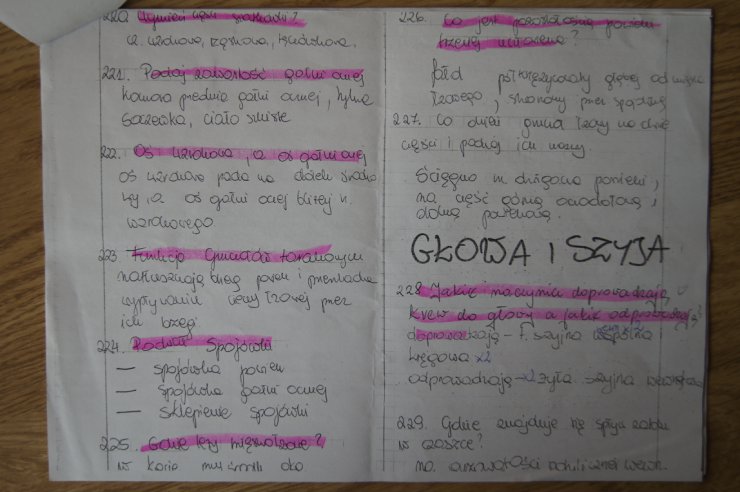 220 Wymień części siatkówki?
cz. wzrokowa, rzęskowa, tęczówkowa.
221. Podaj zawartość gałki ocznej
komora przednia gałki ocznej, tylna
soczewka, ciało szkliste
222. Oś wzrokowa, a oś gałki ocznej
oś wzrokowa pada na dołek środko
wy, a oś gałki ocznej bliżej n.
wzrokowego.
223. Funkcja Gruczołów tarczkowych
natłuszczają brzeg powiek i
wypływaniu cieczy łzowej przez
ich brzegi
224. Podział Spojówki
— spojówka powiek
— spojówka gałki ocznej
— sklepienie spojówki
225. Gdzie leży mięso łzowe?
w kącie oka
226. Co jest pozostałością powieki
trzeciej u człowieka?
fałd półksiężycowaty głębiej od mięska
łzowego, przez spojówkę
227. Co dzieli gruczoł łzowy na dwie
części i podaj ich nazwy.
Ścięgno m. dźwigacza powieki,
na część górną oczodołową i
dolną powiekową.
GŁOWA I SZYJA
228 Jakie naczynia doprowadzają
krew do głowy a jakie odprowadzają?
doprowadzają – t. szyjna wspólna
kręgowa x2
odprowadzają → x2 żyła szyjna wewnętrzna
229. Gdzie znajduje się spływ zatok
w czaszce?
na potylicznej wewn.